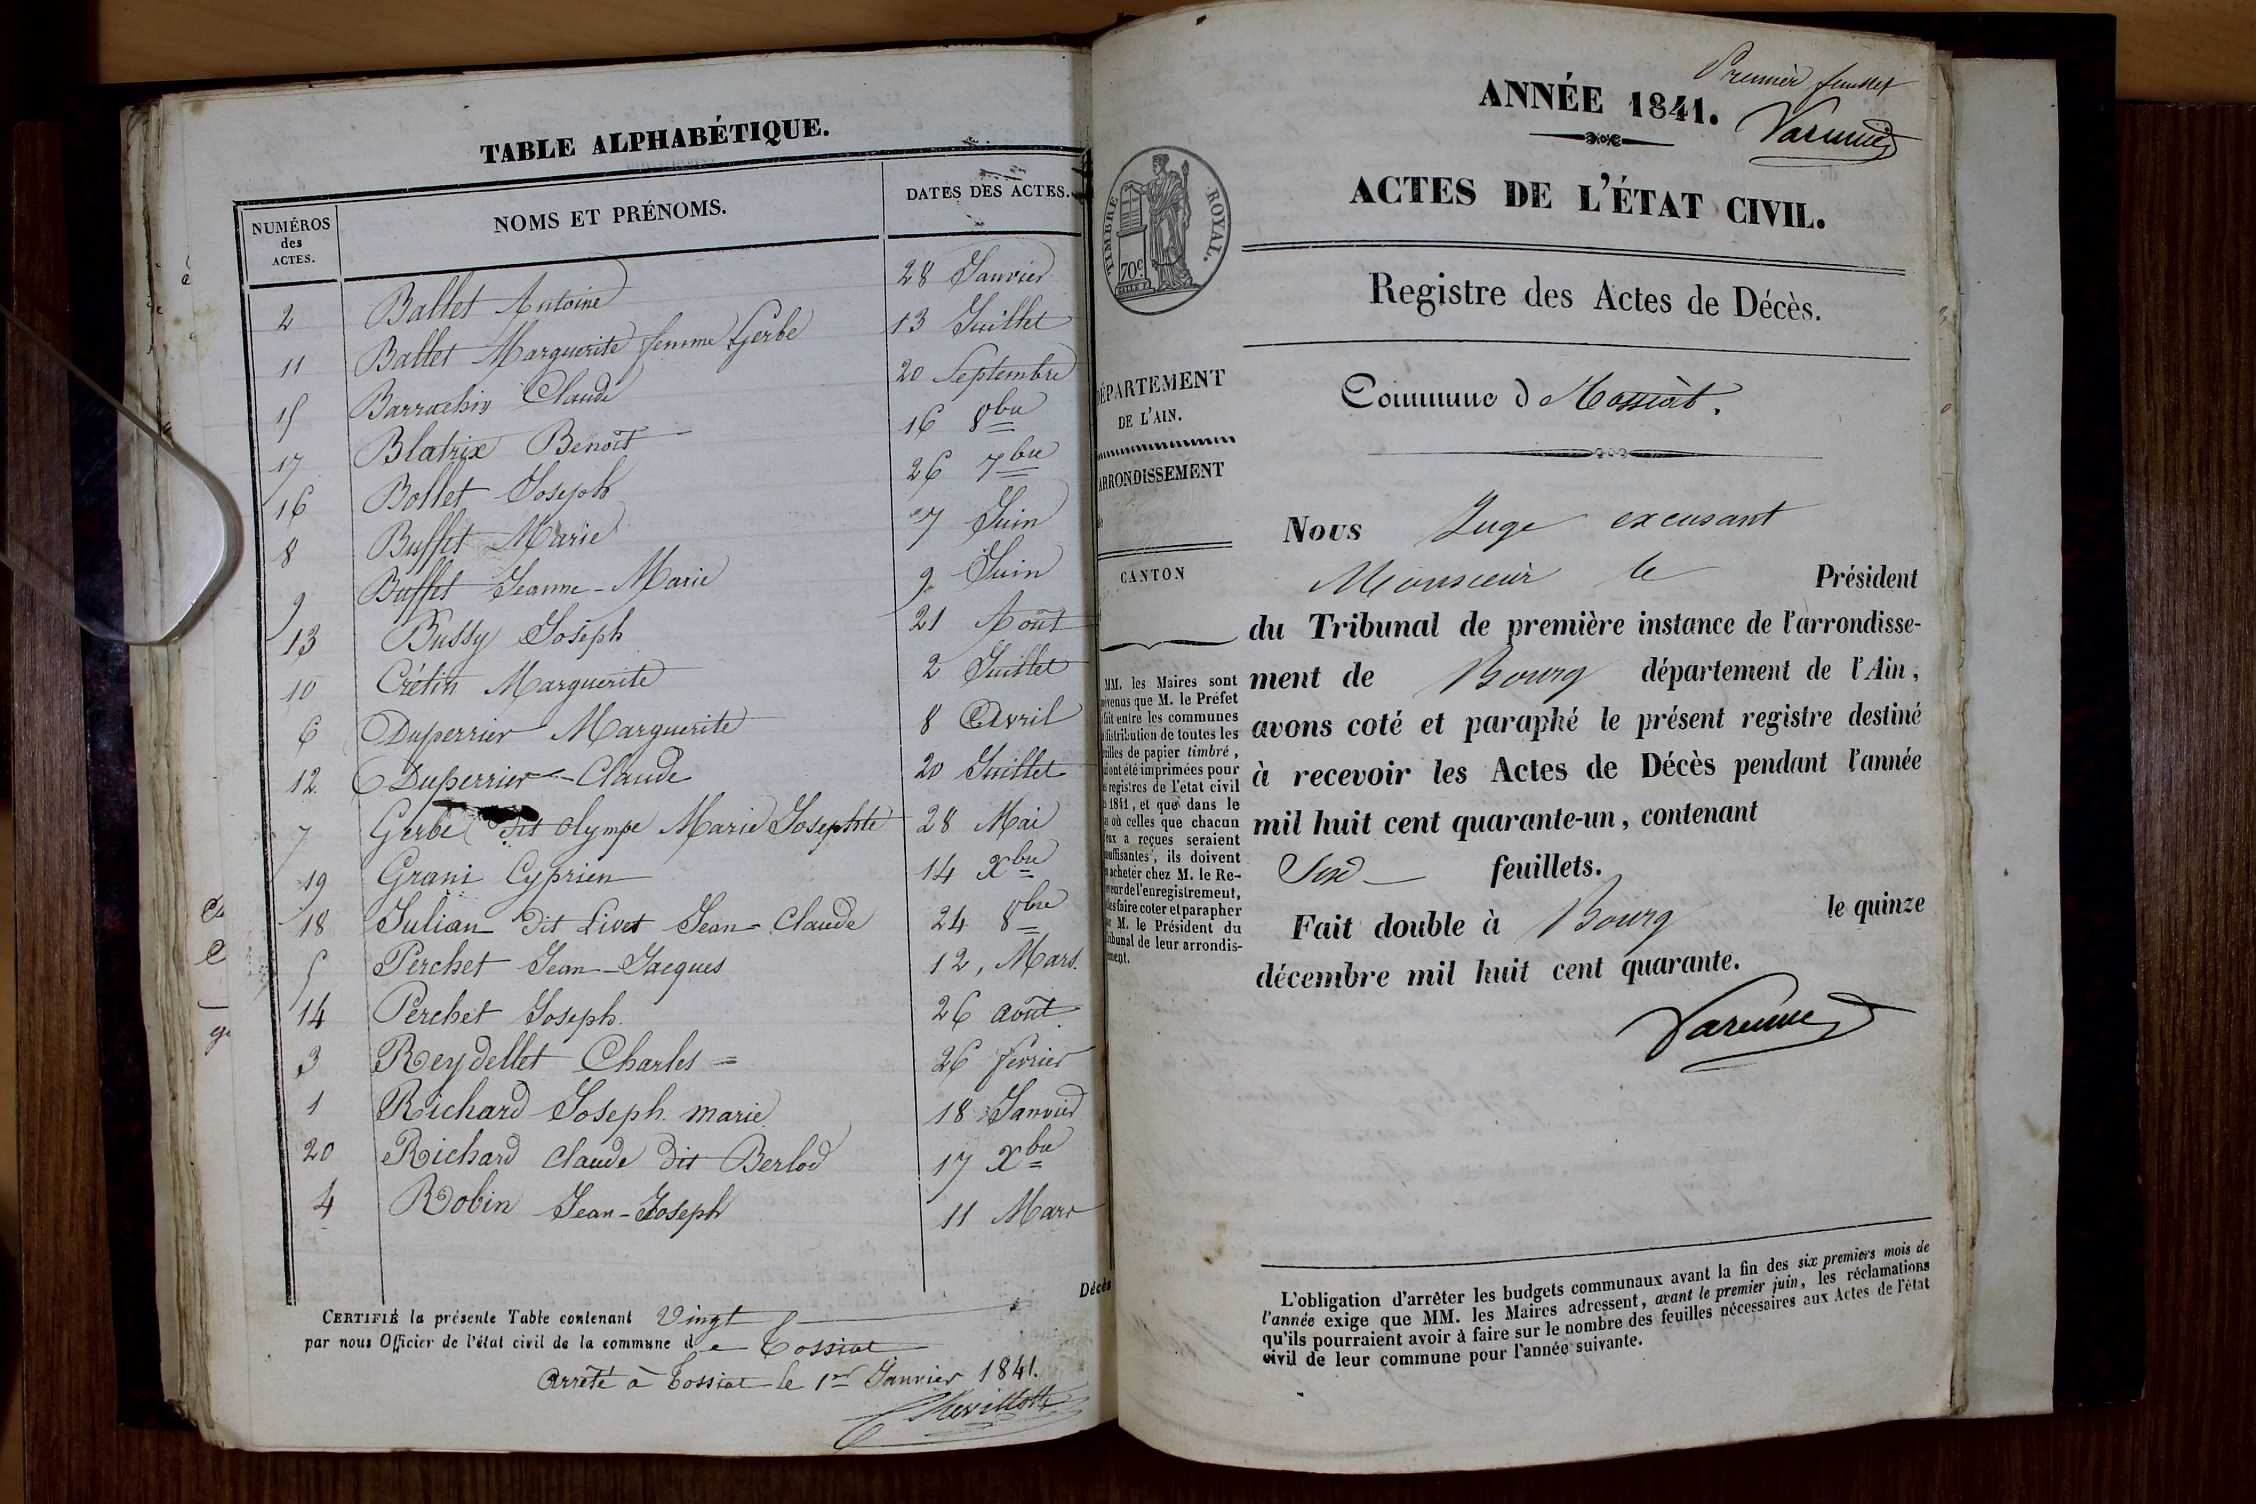 TABLE ALPHABÉTIQUE.
NUMÉROS des ACTES. NOMS ET PRÉNOMS. DATES DES ACTES.
2 Ballet Antoine 28 Janvier
11 Ballet Marguerite femme Gerbe 13 Juillet
15 Barrachin Claude 20 Septembre
17 Blatrix Benoit 16 8bre
16 Bollet Joseph 26 7bre
8 Buffet Marie 7 Juin
9 Buffet Jeanne-Marie 9 Juin
13 Bussy Joseph 21 Août
10 Crétin Marguerite 2 Juillet
6 Duperrier Marguerite 8 Avril
12 Duperrier Claude 20 Juillet
7 Gerbe dit Olympe Marie Josephte 28 Mai
19 Grani Cyprien 14 Xbre
18 Julian dit Livet Jean-Claude 24 8bre
5 Perchet Jean-Jacques 12, Mars.
14 Perchet Joseph. 26 août
3 Reydellet Charles = 26 février
1 Richard Joseph marie 18 Janvier
20 Richard Claude dit Berlod 17 Xbre
4 Robin Jean-Joseph 11 Mars
Décès
CERTIFIÉ la présente Table contenant Vingt
par nous Officier de l'état civil de la commune de Tossiat
Arrêté à Tossiat le 1er Janvier 1841.
Premier feuillet
ANNÉE 1841.
Varenne
ACTES DE L'ÉTAT CIVIL.
TIMBRE ROYAL.
70c
Registre des Actes de Décès.
DÉPARTEMENT
DE L'AIN.
Commune d
ARRONDISSEMENT
CANTON
Nous Juge excusant
Monsieur le Président
du Tribunal de première instance de l'arrondisse-
ment de Bourg département de l'Ain,
avons coté et paraphé le présent registre destiné
à recevoir les Actes de Décès pendant l'année
mil huit cent quarante-un, contenant
Six feuillets.
Fait double à Bourg le quinze
décembre mil huit cent quarante.
Varenne
MM. les Maires sont
venus que M. le Préfet
fait entre les communes
distribution de toutes les
feuilles de papier timbré,
ont été imprimées pour
registres de l'état civil
1841, et que dans le
où celles que chacun
eux a reçues seraient
insuffisantes, ils doivent
acheter chez M. le Re-
ceveur de l'enregistrement,
les faire coter et parapher
M. le Président du
tribunal de leur arrondis-
sement.
L'obligation d'arrêter les budgets communaux avant la fin des six premiers mois de
l'année exige que MM. les Maires adressent, avant le premier juin, les réclamations
qu'ils pourraient avoir à faire sur le nombre des feuilles nécessaires aux Actes de l'état
civil de leur commune pour l'année suivante.